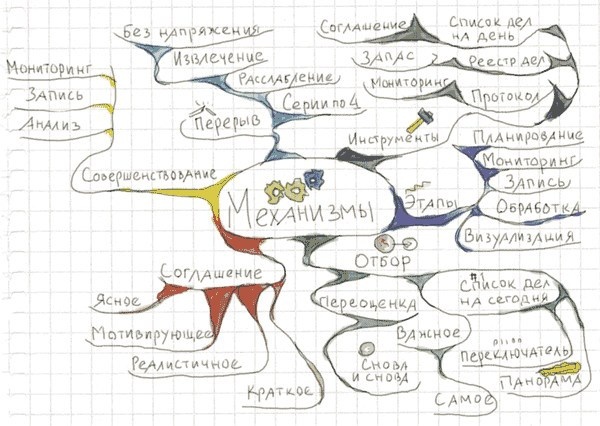 Без напряжения
Извлечение
Расслабление
Серии по 4
Перерыв
Мониторинг
Запись
Анализ
Совершенствование
Соглашение
Список дел
на день
Запас
Реестр дел
Мониторинг
Протокол
Инструменты
Планирование
Мониторинг
Запись
Обработка
Визуализация
Этапы
Механизмы
Отбор
Соглашение
Ясное
Мотивирующее
Реалистичное
Краткое
Переоценка
Снова
и снова
Важное
Самое
#1
Список дел
на сегодня
Переключатель
Панорама